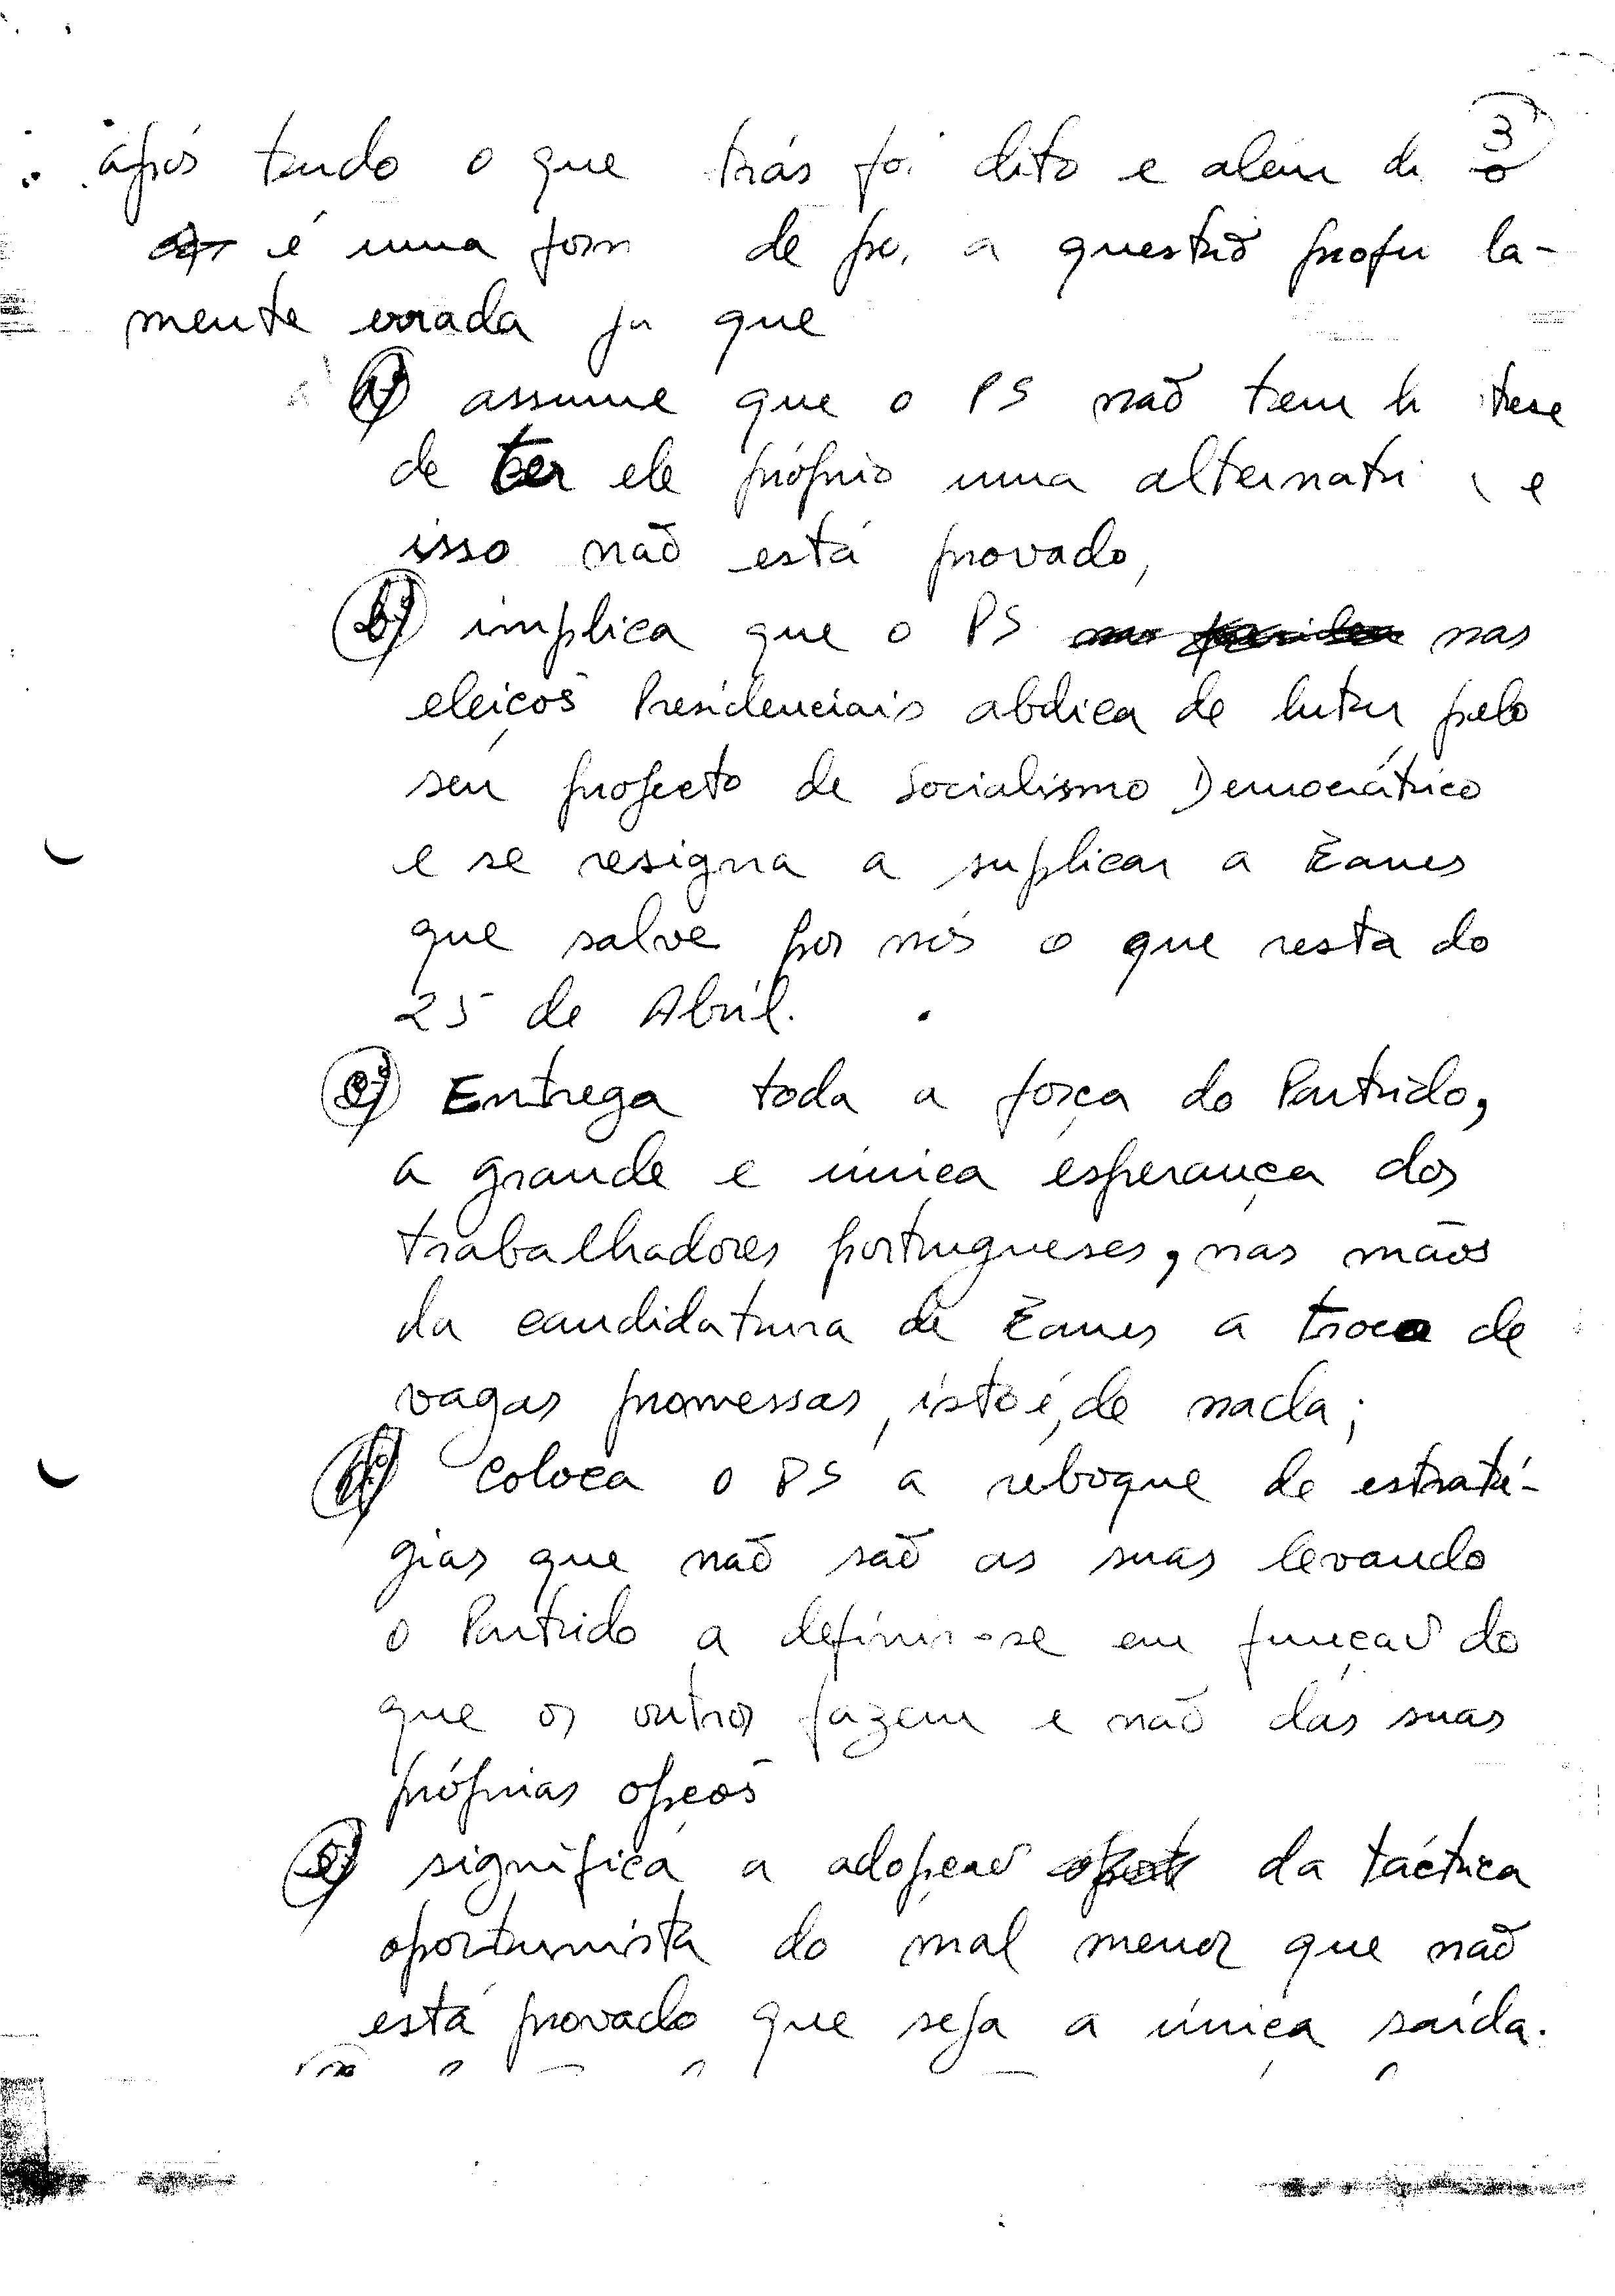 3
após tudo o que trás foi dito e além de
é uma form de a questão profu la-
mente errada ja que
a) assume que o PS não tem h tese
de ter ele próprio uma alternati e
isso não está provado,
b) implica que o PS nas
eleições Presidenciais abdica de lutar pelo
seu projecto de Socialismo Democrático
e se resigna a suplicar a Eanes
que salve por nós o que resta do
25 de Abril.
c) Entrega toda a força do Partido,
a grande e única esperança dos
trabalhadores portugueses, nas mãos
da candidatura de Eanes a troco de
vagas promessas, isto é, de nada;
d) coloca o PS a reboque de estraté-
gias que não são as suas levando
o Partido a definir-se em função do
que os outros fazem e não das suas
próprias opções
e) significa a adopção da táctica
oportunista do mal menor que não
está provado que seja a única saída.